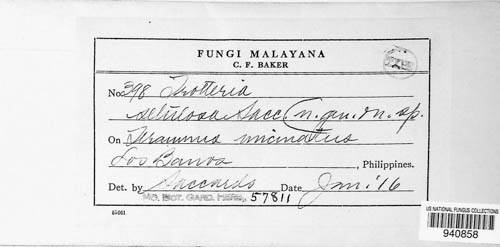 FUNGI MALAYANA
C. F. BAKER
No. 398 Trotteria
setulosa Sacc (n. gen. & n. sp.
On Teramnus uncinatus
Los Banos, Philippines.
Det. by Saccardo Date Jan. '16
MO. BOT. GARD. HERB. 57811
US NATIONAL FUNGUS COLLECTIONS
940858